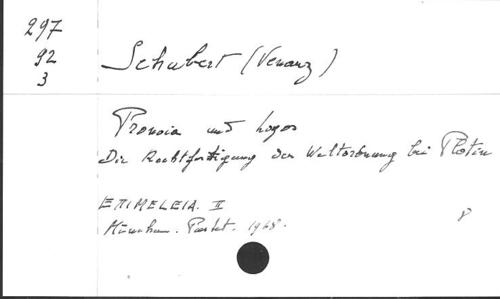 297
92
3
Schubert (Venanz)
Pronoia und Logos
Die Rechtfertigung der Weltordnung bei Plotin
EPIMELEIA. II
München. Pustet. 1968.
8